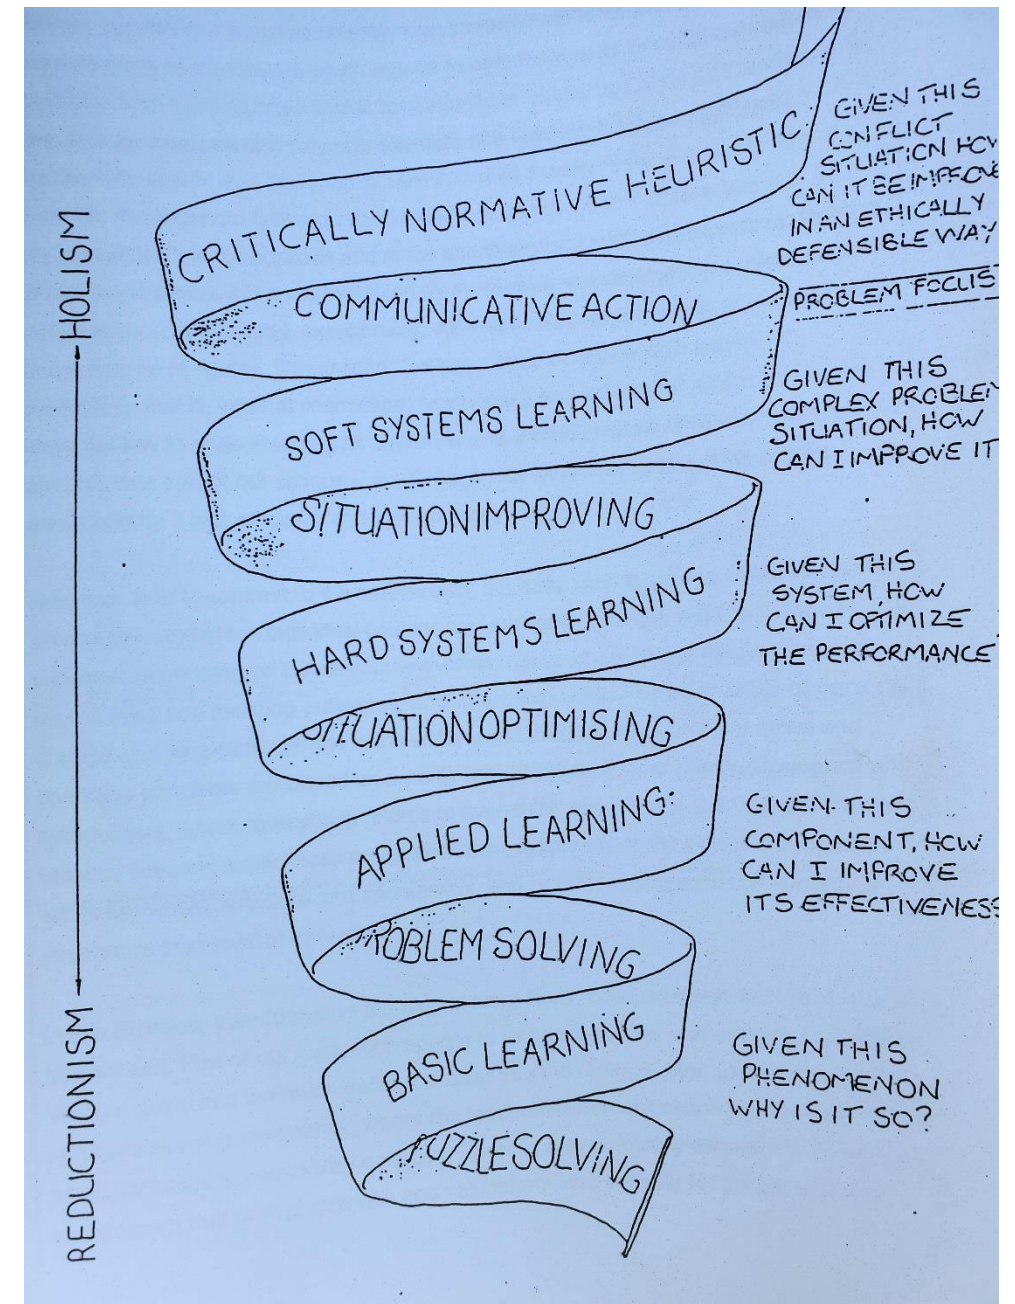 HOLISM
REDUCTIONISM
CRITICALLY NORMATIVE HEURISTIC.
COMMUNICATIVE ACTION
SOFT SYSTEMS LEARNING
SITUATION IMPROVING
HARD SYSTEMS LEARNING
SITUATION OPTIMISING
APPLIED LEARNING.
PROBLEM SOLVING
BASIC LEARNING
PUZZLE SOLVING
GIVEN THIS
CONFLICT
SITUATION HOW
CAN IT BE IMPROVE
IN AN ETHICALLY
DEFENSIBLE WAY
PROBLEM FOCUS
GIVEN THIS
COMPLEX PROBLEM
SITUATION, HOW
CAN I IMPROVE IT
GIVEN THIS
SYSTEM, HOW
CAN I OPTIMIZE
THE PERFORMANCE
GIVEN THIS
COMPONENT, HOW
CAN I IMPROVE
ITS EFFECTIVENESS
GIVEN THIS
PHENOMENON
WHY IS IT SO?